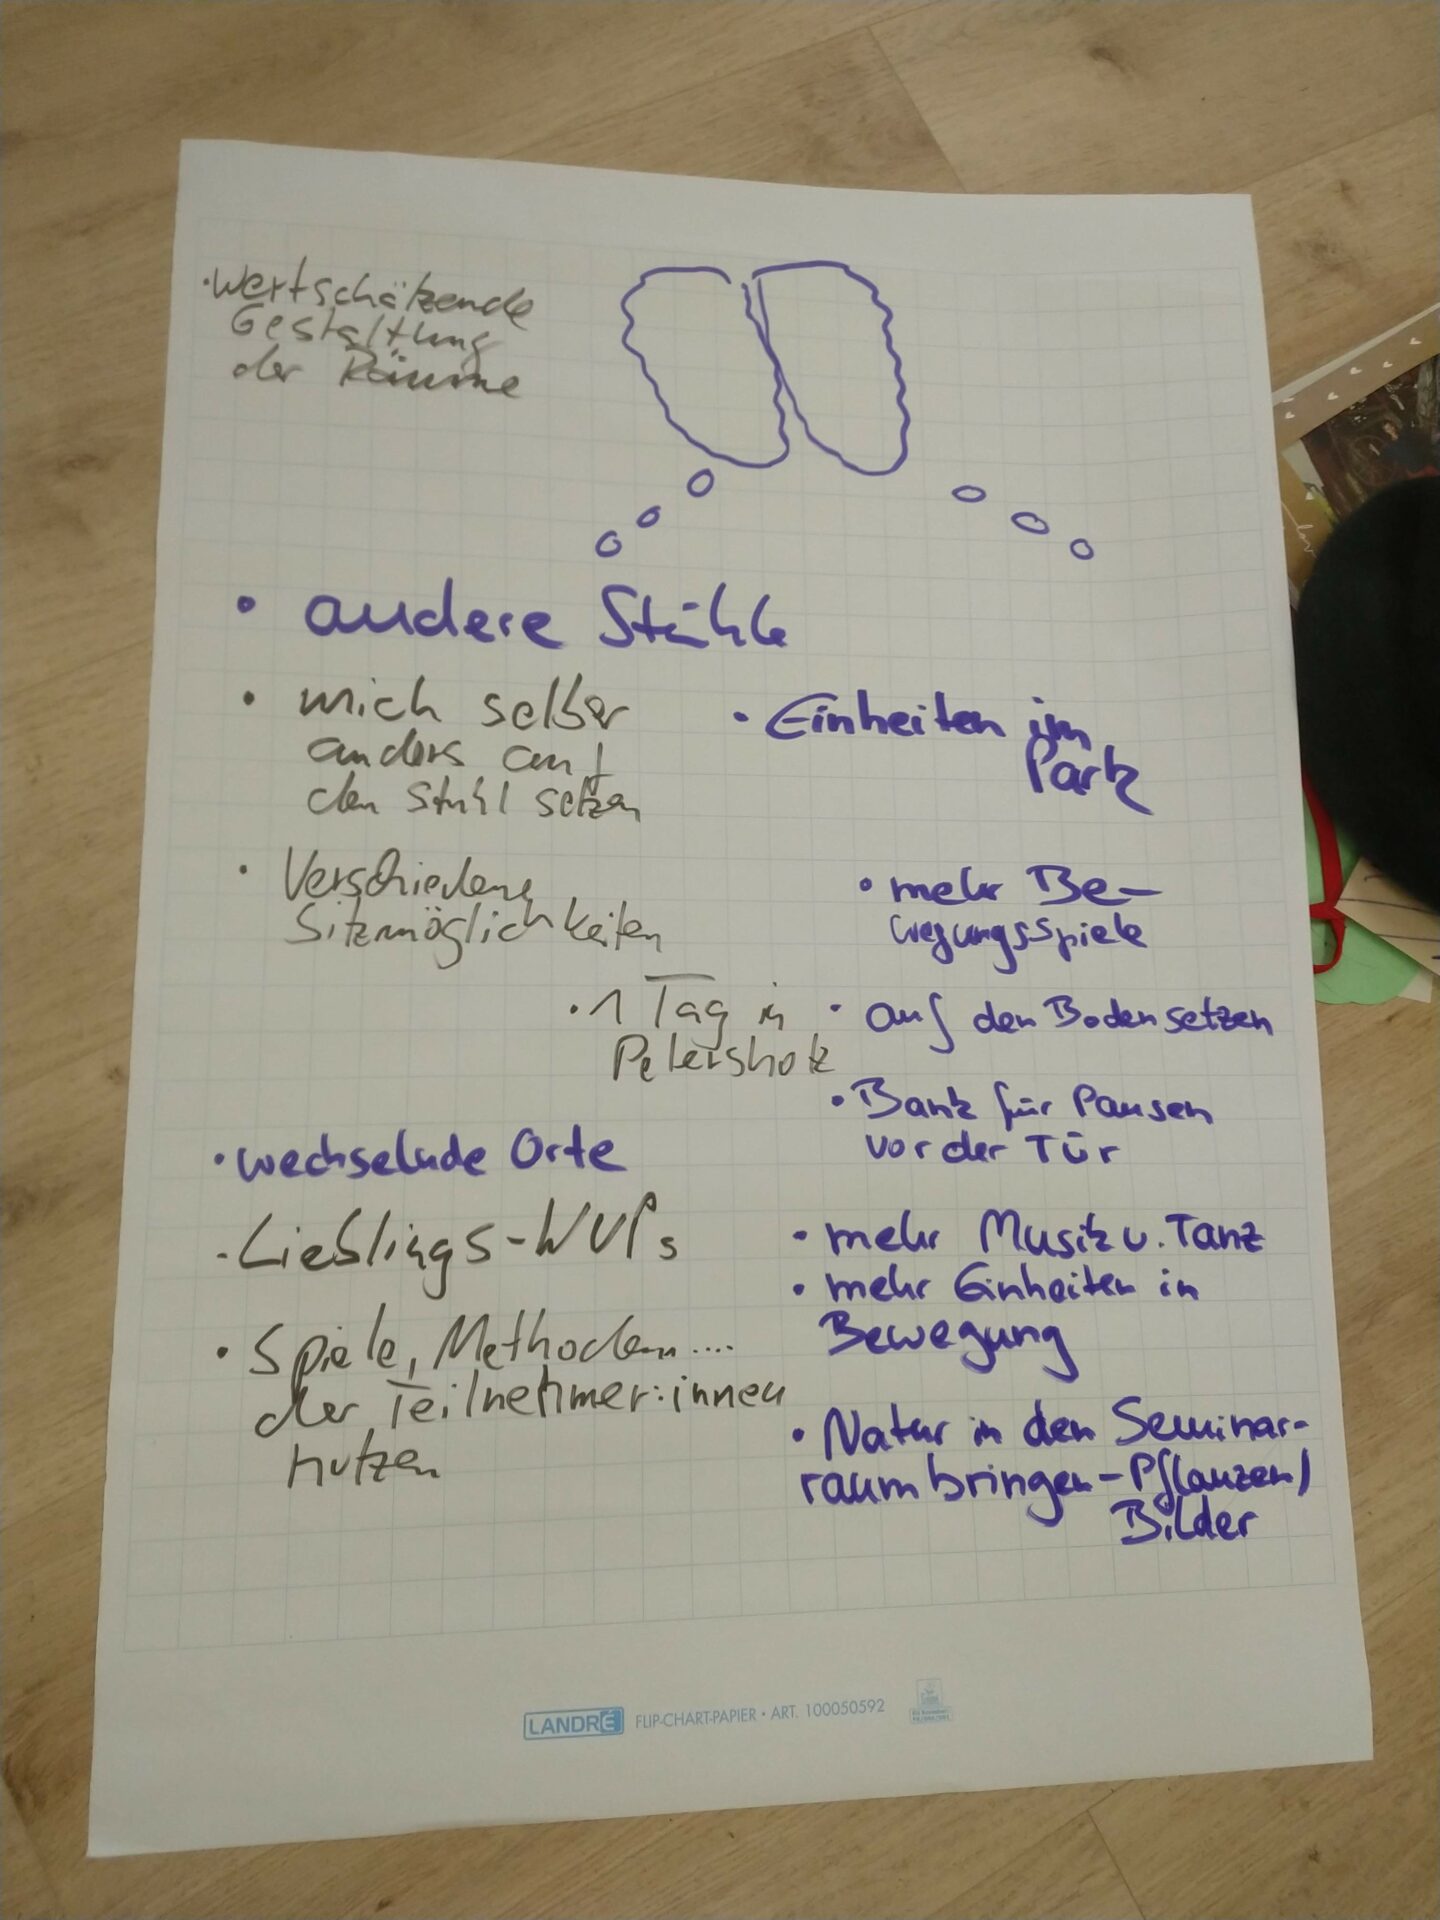 · Wertschätzende
Gestaltung
der Räume
· andere Stühle
· mich selber
anders auf
den Stuhl setzen
· Einheiten im
Park
· Verschiedene
Sitzmöglichkeiten
· mehr Be-
wegungsspiele
· 1 Tag in
· auf den Boden setzen
· Bank für Pausen
vor der Tür
· wechselnde Orte
· Lieblings-WUPs
· mehr Musik u. Tanz
· mehr Einheiten in
Bewegung
· Spiele, Methoden....
der Teilnehmer:innen
nutzen
· Natur in den Seminar-
raum bringen - Pflanzen/
Bilder
LANDRÉ FLIP-CHART-PAPIER • ART. 100050592